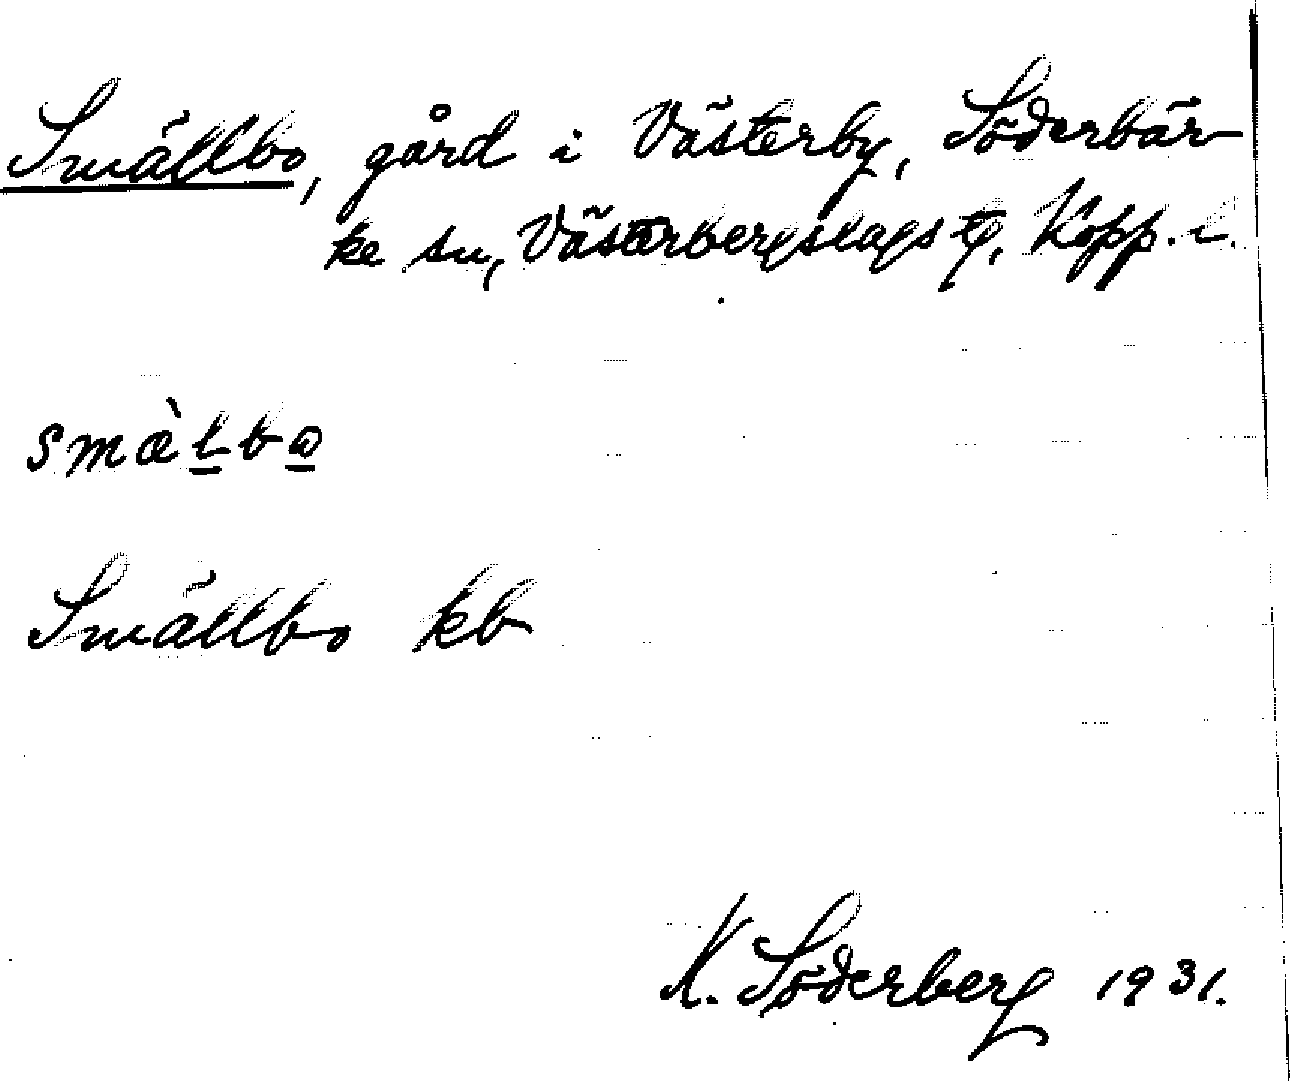 Smällbo, gård i Västerby, Söderbär
ke sn, Västerbergslags tg, Kopp. l.
smæ̀l̲bo̲
Smällbo kb
K. Söderberg 1931.